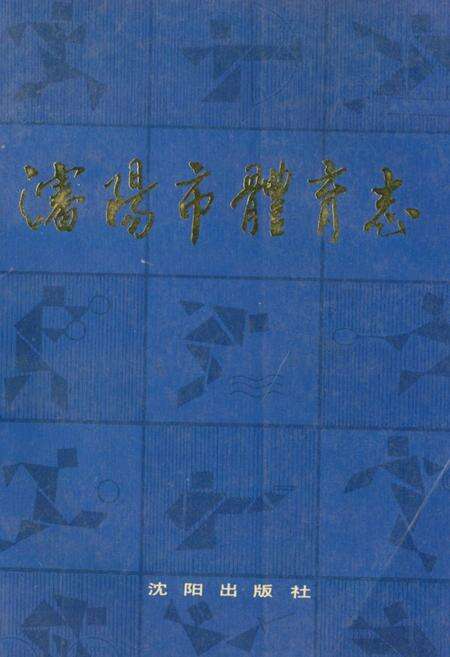 瀋陽市體育志
沈阳出版社